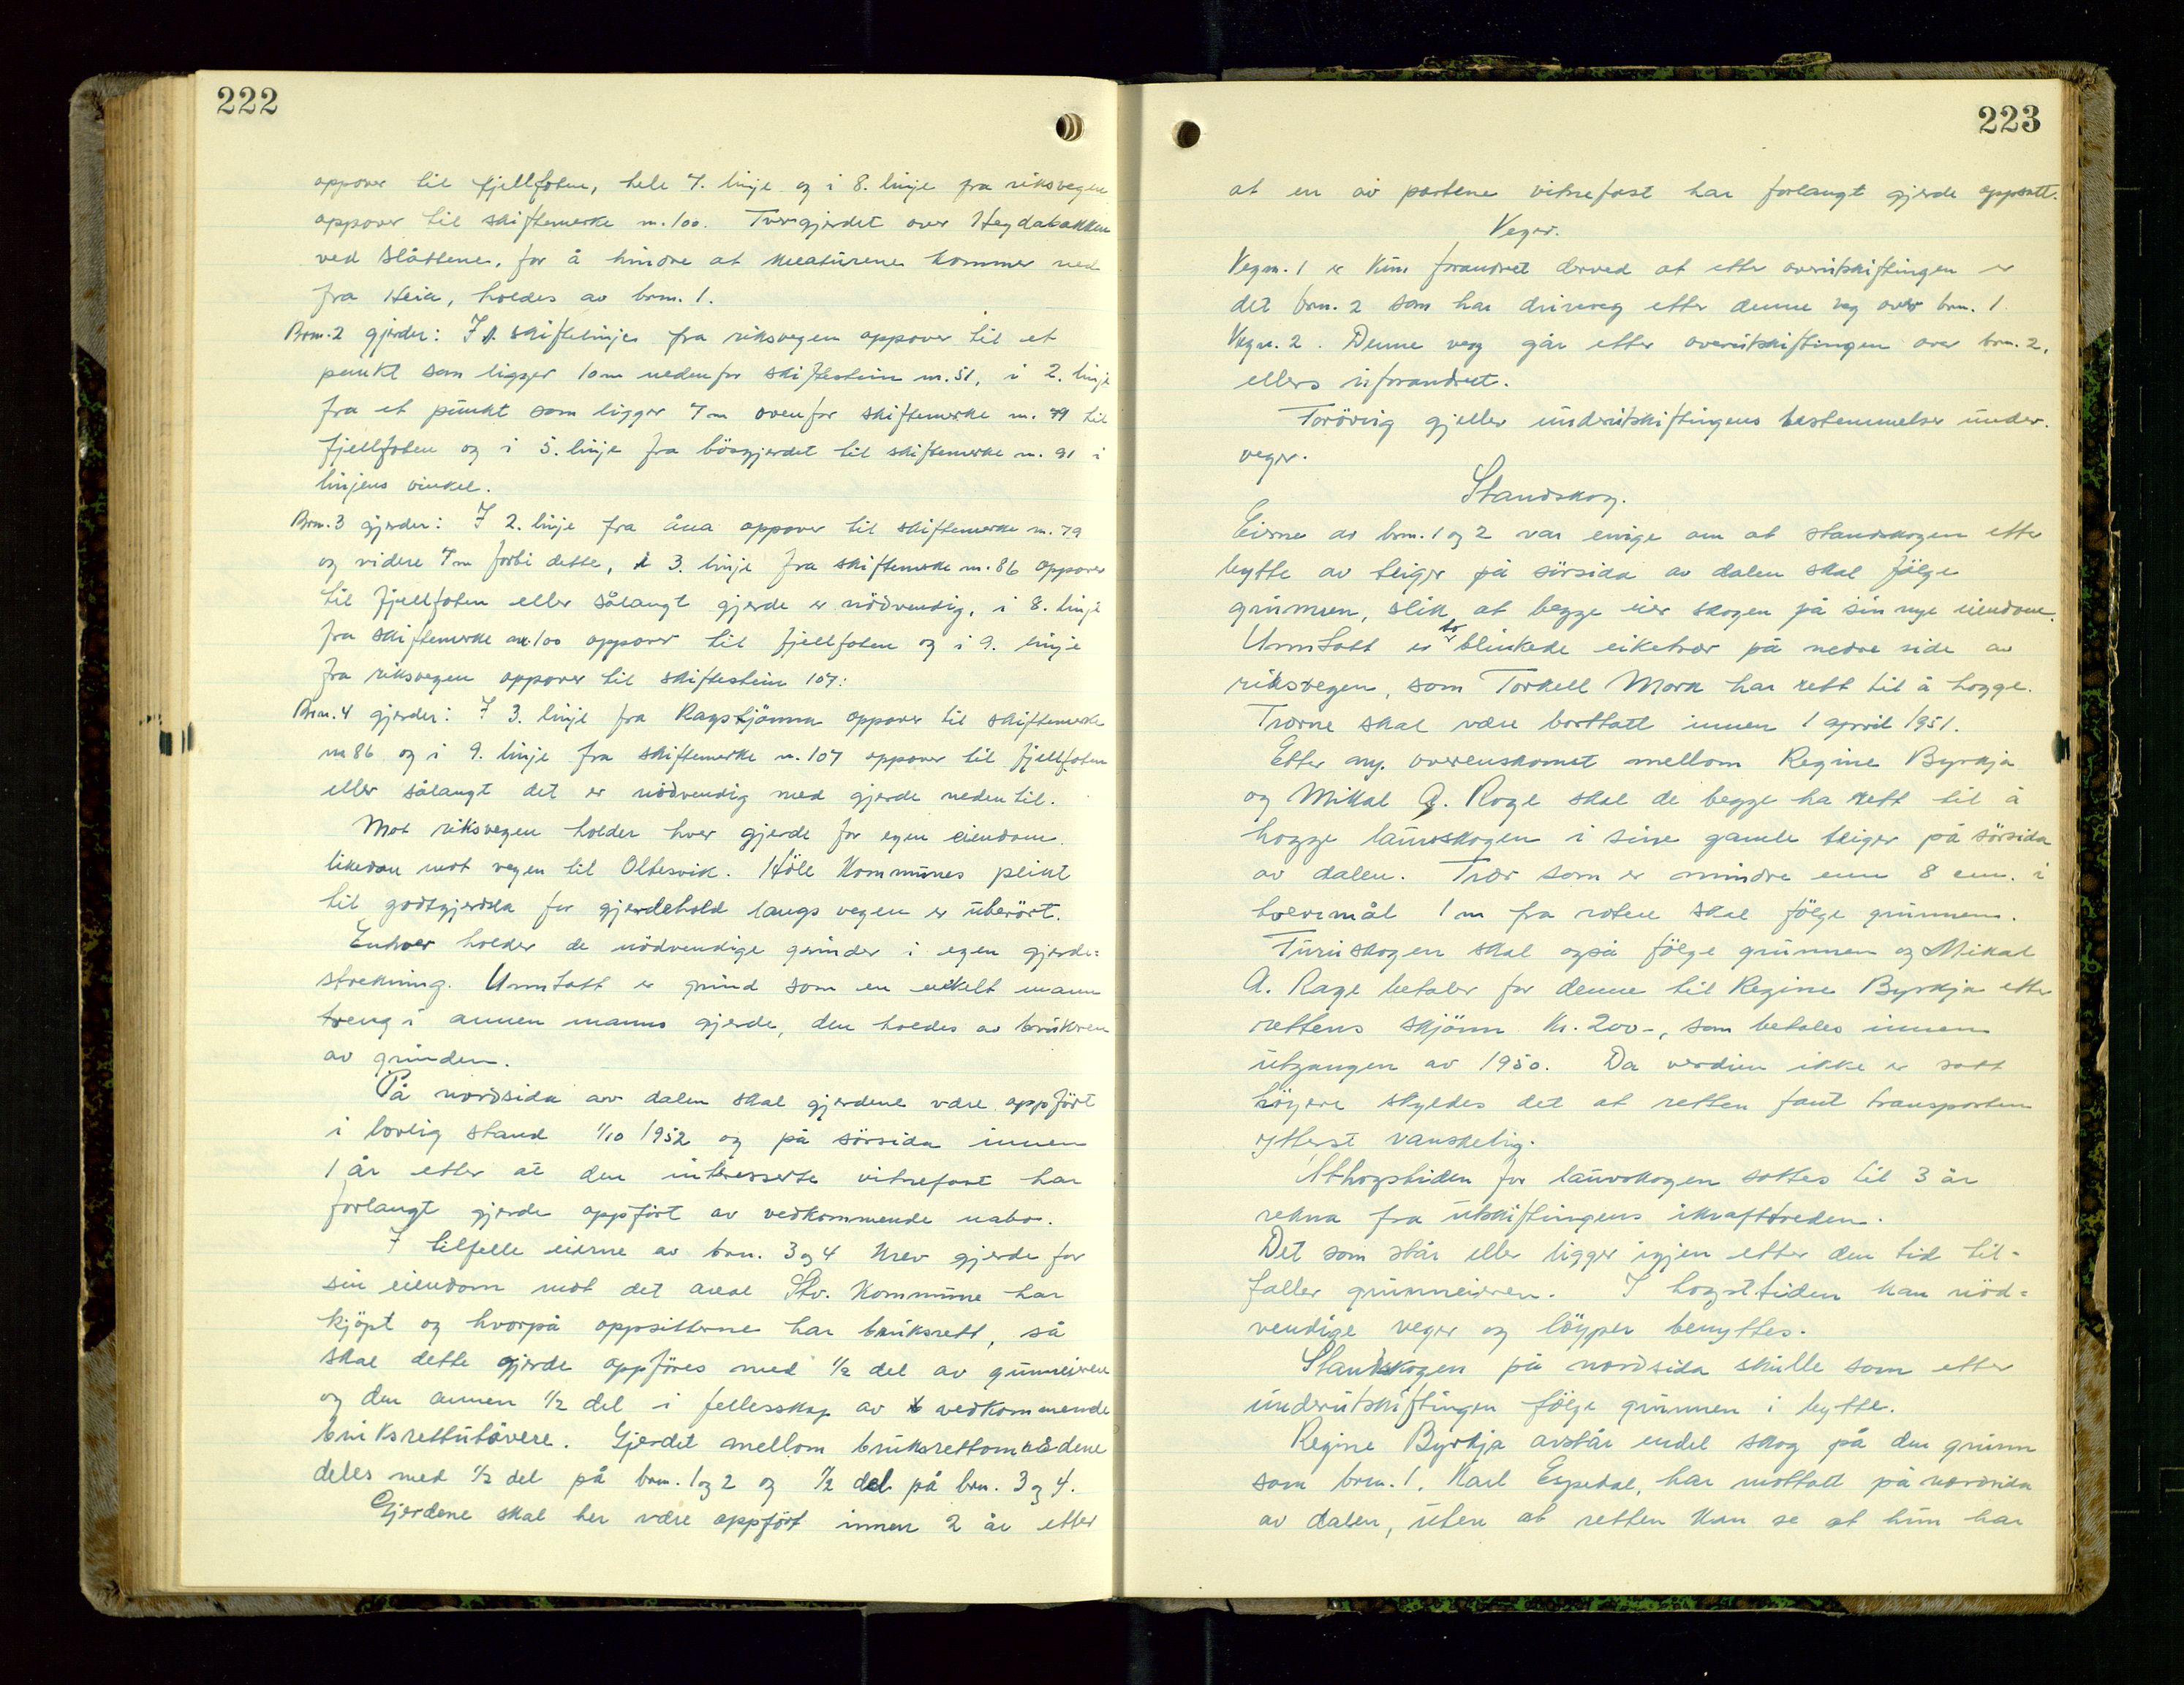 222
oppover til fjellfoten, hele 7. linje og i 8. linje fra riksvegen
oppover til skiftemerke nr. 100. Tvergjerdet over Høgdabakken
ved Slåttene, for å hindre at kreaturene kommer ned
fra Heia, holdes av brnr. 1.
Brnr. 2 gjerder: I 1. skiftelinje fra riksvegen oppover til et
punkt som ligger 10 m nedenfor skiftestein nr. 51, i 2. linje
fra et punkt som ligger 7 m ovenfor skiftemerke nr. 79 til
fjellfoten og i 5. linje fra bögjerdet til skiftemerke nr. 91 i
linjens vinkel.
Brnr. 3 gjerder: I 2. linje fra åna oppover til skiftemerke nr. 79
og videre 7 m forbi dette, i 3. linje fra skiftemerke nr. 86 oppover
til fjellfoten eller sålangt gjerde er nödvendig, i 8. linje
fra skiftemerke nr. 100 oppover til fjellfoten og i 9. linje
fra riksvegen oppover til skiftestein 107.
Brnr. 4 gjerder: I 3. linje fra Ragstjönna oppover til skiftemerke
nr. 86 og i 9. linje fra skiftemerke nr. 107 oppover til fjellfoten
eller sålangt det er nödvendig med gjerde nedentil.
Mot riksvegen holder hver gjerde for egen eiendom
likedan mot vegen til Oltesvik. Höle Kommunes plikt
til godtgjerdsla for gjerdehold langs vegen er uberört.
Enhver holder de nödvendige grinder i egen gjerde=
strekning. Unntatt er grind som en enkelt mann
treng i annen manns gjerde, den holdes av brukeren
av grinden.
På nordsida av dalen skal gjerdene være oppfört
i lovlig stand 1/10 1952 og på sörsida innen
1 år etter at den interesserte vitnefast har
forlangt gjerde oppfört av vedkommende nabo.
I tilfelle eierne av brnr. 3 og 4 krev gjerde for
sin eiendom mot det areal Stv. Kommune har
kjöpt og hvorpå oppsitterne har bruksrett, så
skal dette gjerde oppföres med 1/2 del av grunneieren
og den annen 1/2 del i fellesskap av vedkommende
bruksrettutövere. Gjerdet mellom bruksrettområdene
deles med 1/2 del på brnr. 1 og 2 og 1/2 del på brnr. 3 og 4.
Gjerdene skal her være oppfört innen 2 år etter
223
at en av partene vitnefast har forlangt gjerde oppsatt.
Veger.
Vegnr. 1 er kun forandret derved at etter overutskiftingen er
det brnr. 2 som har driveveg etter denne veg over brnr. 1.
Vegnr. 2. Denne veg går etter overutskiftingen over brnr. 2,
ellers uforandret.
Forövrig gjeller underutskiftingens bestemmelser under
veger.
Standskog.
Eierne av brnr. 1 og 2 var enige om at standskogen etter
bytte av teiger på sörsida av dalen skal fölge
grunnen, slik at begge eier skogen på sin nye eiendom.
Unntatt er to blinkede eiketrær på nedre side av
riksvegen, som Torkell Mork har rett til å hogge.
Trærne skal være borttatt innen 1 april 1951.
Etter ny. overenskomst mellom Regine Byrkja
og Mikal A. Rage skal de begge ha rett til å
hogge lauvskogen i sine gamle teiger på sörsida
av dalen. Trær som er mindre enn 8 cm. i
tverrmål 1 m fra roten skal fölge grunnen.
Furuskogen skal også fölge grunnen og Mikal
A. Rage betaler for denne til Regine Byrkja etter
rettens skjönn kr. 200-, som betales innen
utgangen av 1950. Da verdien ikke er satt
höyere skyldes det at retten fant transporten
ytterst vanskelig.
Uthogstiden for lauvskogen settes til 3 år
rekna fra utskiftingens ikrafttreden.
Det som står eller ligger igjen etter den tid til-
faller grunneieren. I hogsttiden kan nöd=
vendige veger og löyper benyttes.
Standskogen på nordsida skulle som etter
underutskiftingen fölge grunnen i bytte.
Regine Byrkja avstår endel skog på den grunn
som brnr. 1, Karl Espedal, har mottatt på nordsida
av dalen, uten at retten kan se at hun har